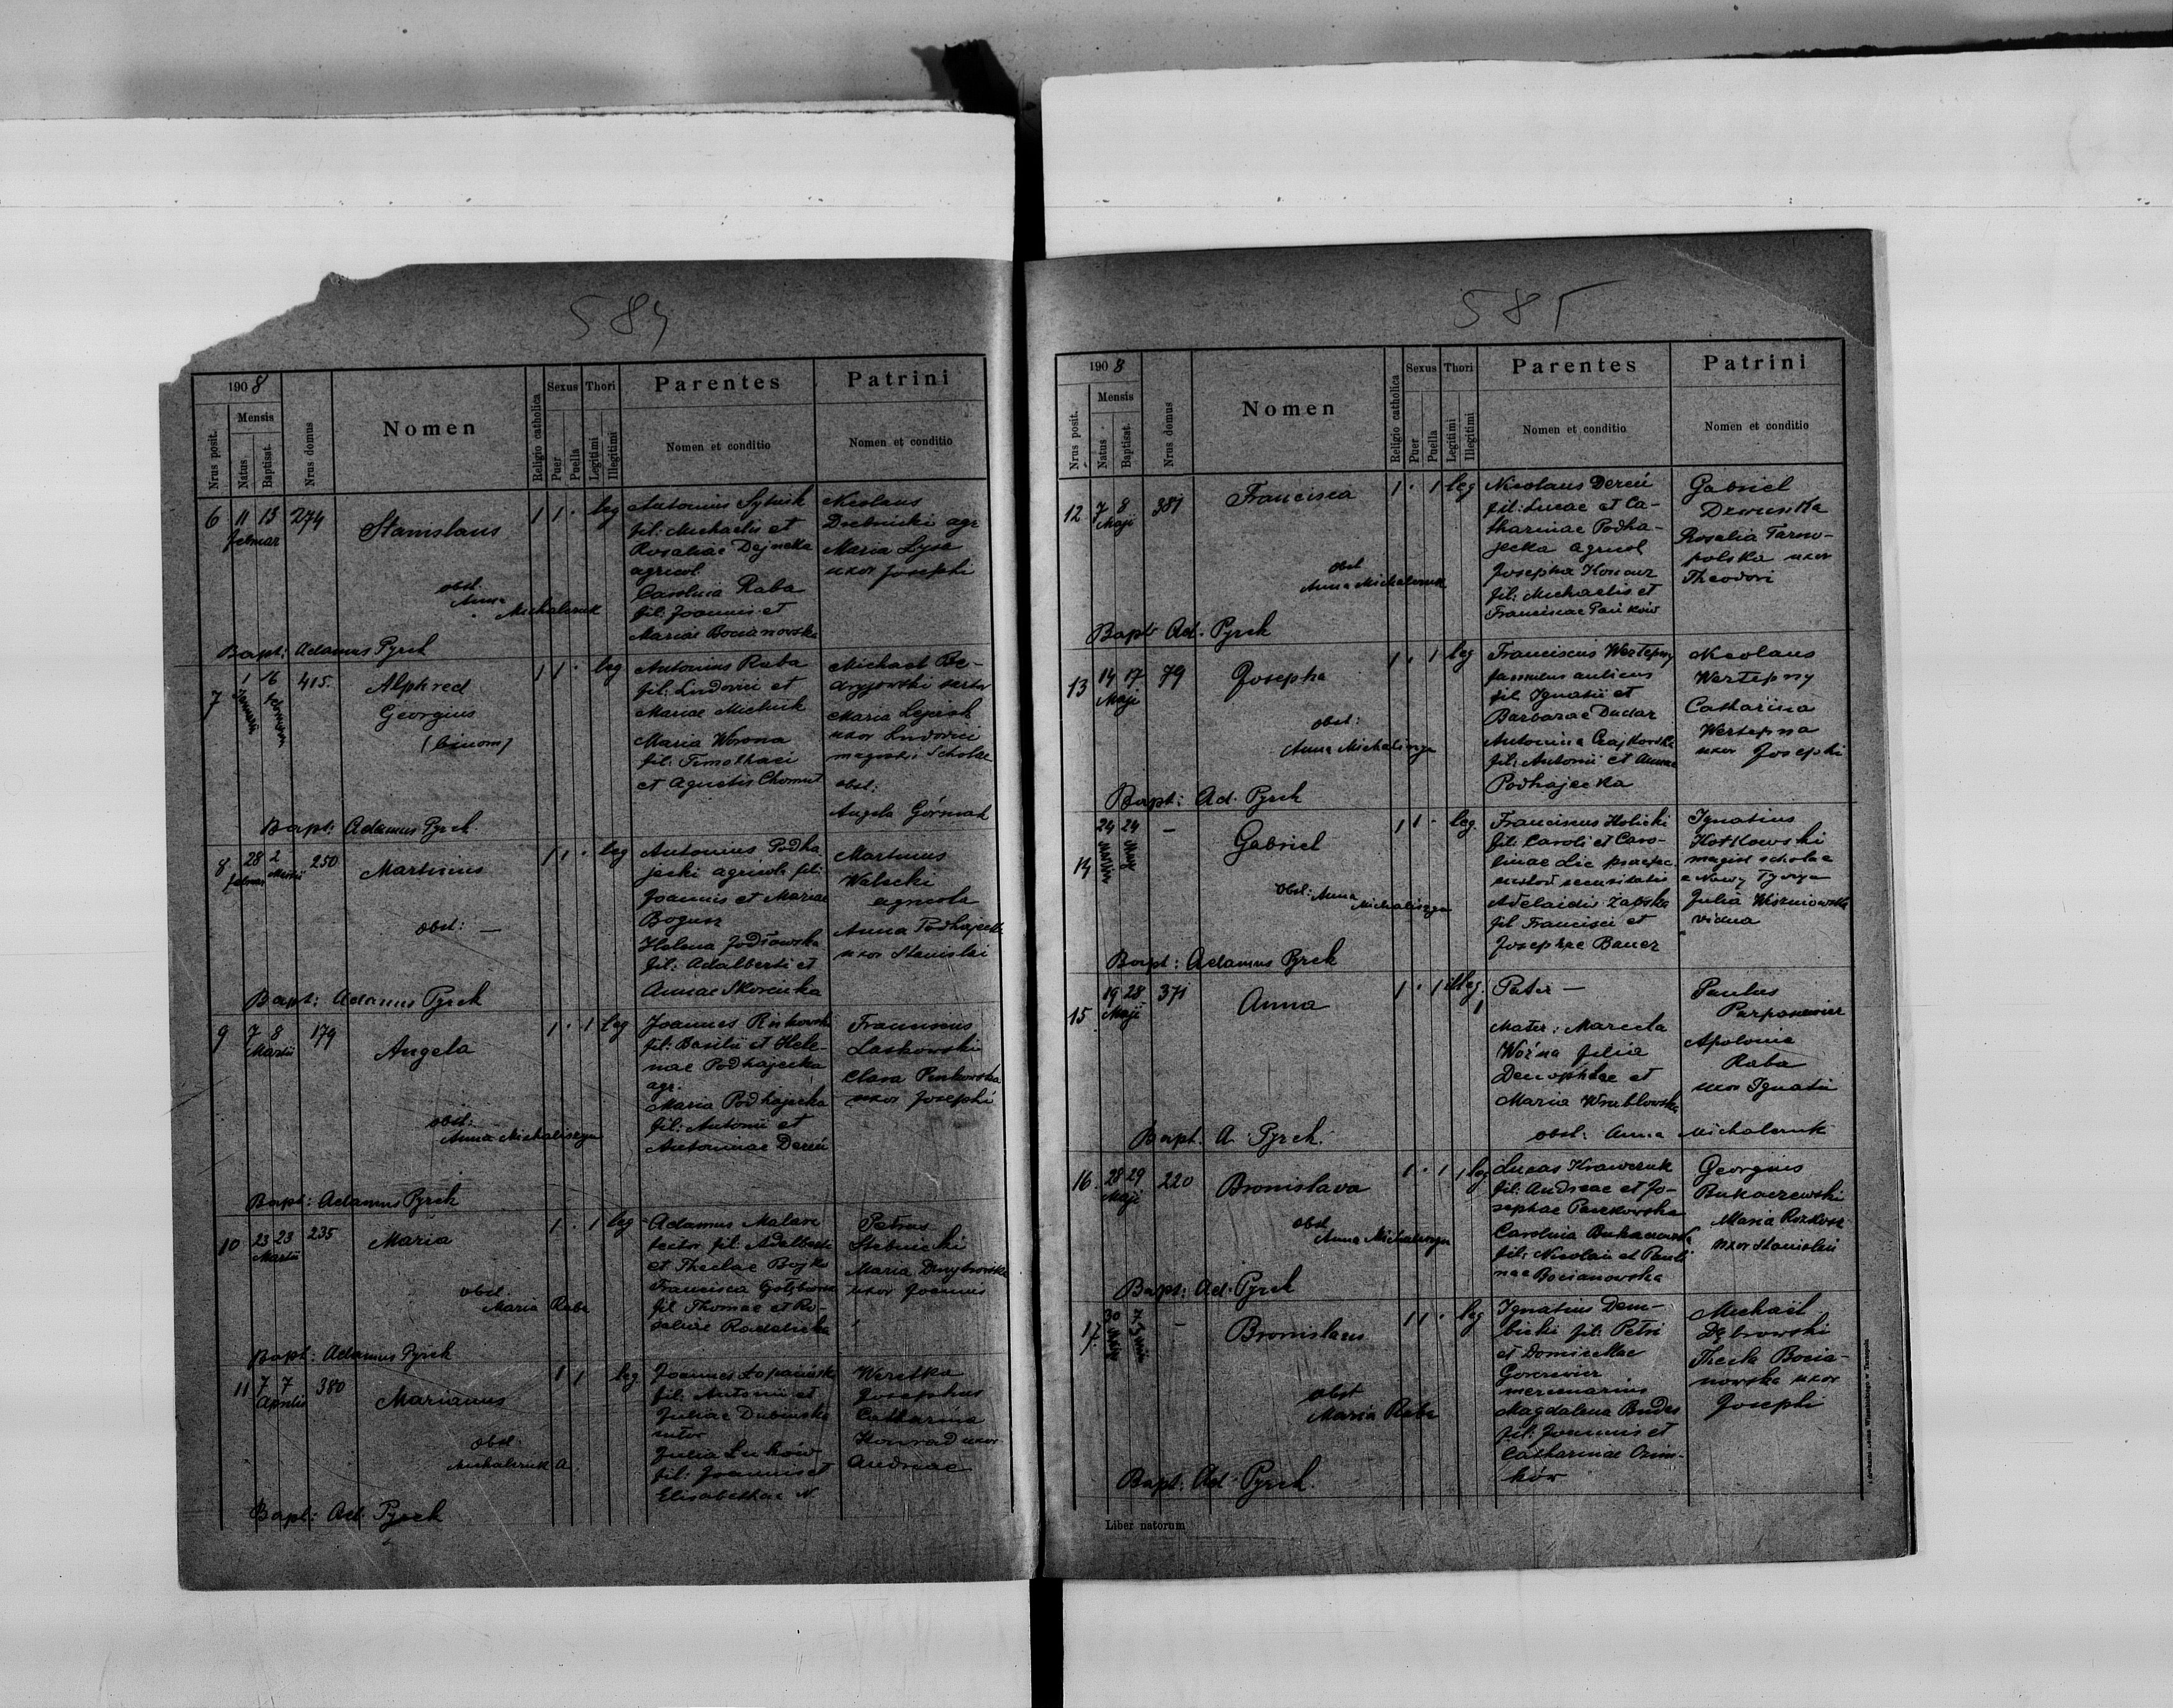 584
1908
Mensis
Nrus posit.
Natus
Baptisat.
Nrus domus
Nomen
Religio catholica
Sexus
Puer
Puella
Thori
Legitimi
Illegitimi
Parentes
Nomen et conditio
Patrini
Nomen et conditio
6 11 13 274 Stanislaus 1 1 · leg
Februar
obst.
Anna
Michalczuk
Antonius Sytnik
fil: Michaelis et
Rosaliae Dejneka
agricol.
Carolina Raba
fil: Joannis et
Mariae Bocianowska
Nicolaus
agr
Maria Lysa
uxor Josephi
Bapt: Adamus Pyrch
7 1 16 415. Alphred 1 1 · leg
Georgius
(binom)
Antonius Raba
fil: Ludovici et
Mariae Michnik
Maria Worona
fil: Timothaei
et Agnetis Chomut
Michael Be-
Maria
uxor Ludovici
magistri Scholae
obst:
Angela Górniak
Bapt: Adamus Pyrch
8 28 2 250 Martinus 1 1 · leg
Februar Martii
obst: —
Antonius Podha
jecki agricola fil:
Joannis et Mariae
Bogusz
Helena Jodłowska
fil: Adalberti et
Annae Skorenka
Martinus
Walecki
agricola
Anna Podhajecka
uxor Stanislai
Bapt: Adamus Pyrch
9 7 8 179 Angela 1 · 1 leg
Martii
obst:
Anna Michaliszyn
Joannes
fil: Basilii et Hele-
nae Podhajecka
agr.
Maria Podhajecka
fil: Antonii et
Antoninae Dereń
Franciscus
Laskowski
Clara Penkowska
uxor Josephi
Bapt: Adamus Pyrch
10 23 23 235 Maria 1 · 1 leg
Martii
obst.
Maria Raba
Adamus Malarz
fil: Adalberti
et Theclae Bojko
Francisca
fil Thomae et Ro-
saliae
Petrus
Stebnicki
Maria
uxor Joannis
Bapt: Adamus Pyrch
11 7 7 380 Marianus 1 1 leg
Aprilis
obst.
Michalczuk A.
Joannes
fil: Antonii et
Juliae Dubinska
sutor
Julia Luków
fil: Joannis et
Elisabethae N.
Weretka
Josephus
Catharina
Konrad uxor
Andreae
Bapt: Ad. Pyrch
585
1908
Mensis
Nrus posit.
Natus
Baptisat.
Nrus domus
Nomen
Religio catholica
Sexus
Puer
Puella
Thori
Legitimi
Illegitimi
Parentes
Nomen et conditio
Patrini
Nomen et conditio
12 7 8 381 Francisca 1 · 1 leg
Maji
obst
Anna Michalczuk
Nicolaus Dereń
fil: Lucae et Ca-
tharinae Podha-
jecka agricol
Josepha
fil: Michaelis et
Franciscae Pańków
Gabriel
Rosalia Tarno-
polska uxor
Theodori
Bapt Ad. Pyrch
13 14 17 79 Josepha 1 · 1 leg
Maji
obst:
Anna Michaliszyn
Franciscus Wertepny
famulus aulicus
fil Ignatii et
Barbarae Dudar
Antonina Czajkowska
fil: Antonii et Annae
Podhajecka
Nicolaus
Wertepny
Catharina
Wertepna
uxor Josephi
Bapt: Ad. Pyrch
14 24 24 — Gabriel 1 1 · leg.
Obst: Anna
Michaliszyn
Franciscus Holicki
fil: Caroli et Caro-
linae Lic
Adelaidis Zabska
fil Francisci et
Josephae Bauer
Ignatius
Kotkowski
magist scholae
Julia Wiszniowska
vidua
Bapt: Adamus Pyrch
15 19 28 371 Anna 1 · 1 illeg.
Maji
Pater —
Mater: Marcela
Woźna filia
et
Maria Wrublowska
Paulus
Parpanowicz
Apolonia
Raba
uxor Ignatii
obst: Anna Michalczuk
Bapt. A. Pyrch.
16. 28 29 220 Bronislava 1 · 1 leg
Maji
obst
Anna Michaliszyn
Lucas Krawczuk
fil: Andreae et Jo-
sephae Paszkowska
Carolina
fil: Nicolai et Pauli
nae Bocianowska
Georgius
Bukaczewski
Maria
uxor Stanislai
Bapt: Ad. Pyrch
17. 30 — Bronislaus 1 1 · leg
obst
Maria Raba
Ignatius Dem-
bicki fil: Petri
et Domicellae
mercenarius
Magdalena
fil: Joannis et
Catharinae Osim-
ków
Michaël
Dąbrowski
Thecla Bocia-
nowska uxor
Josephi
Bapt: Ad. Pyrch.
Liber natorum